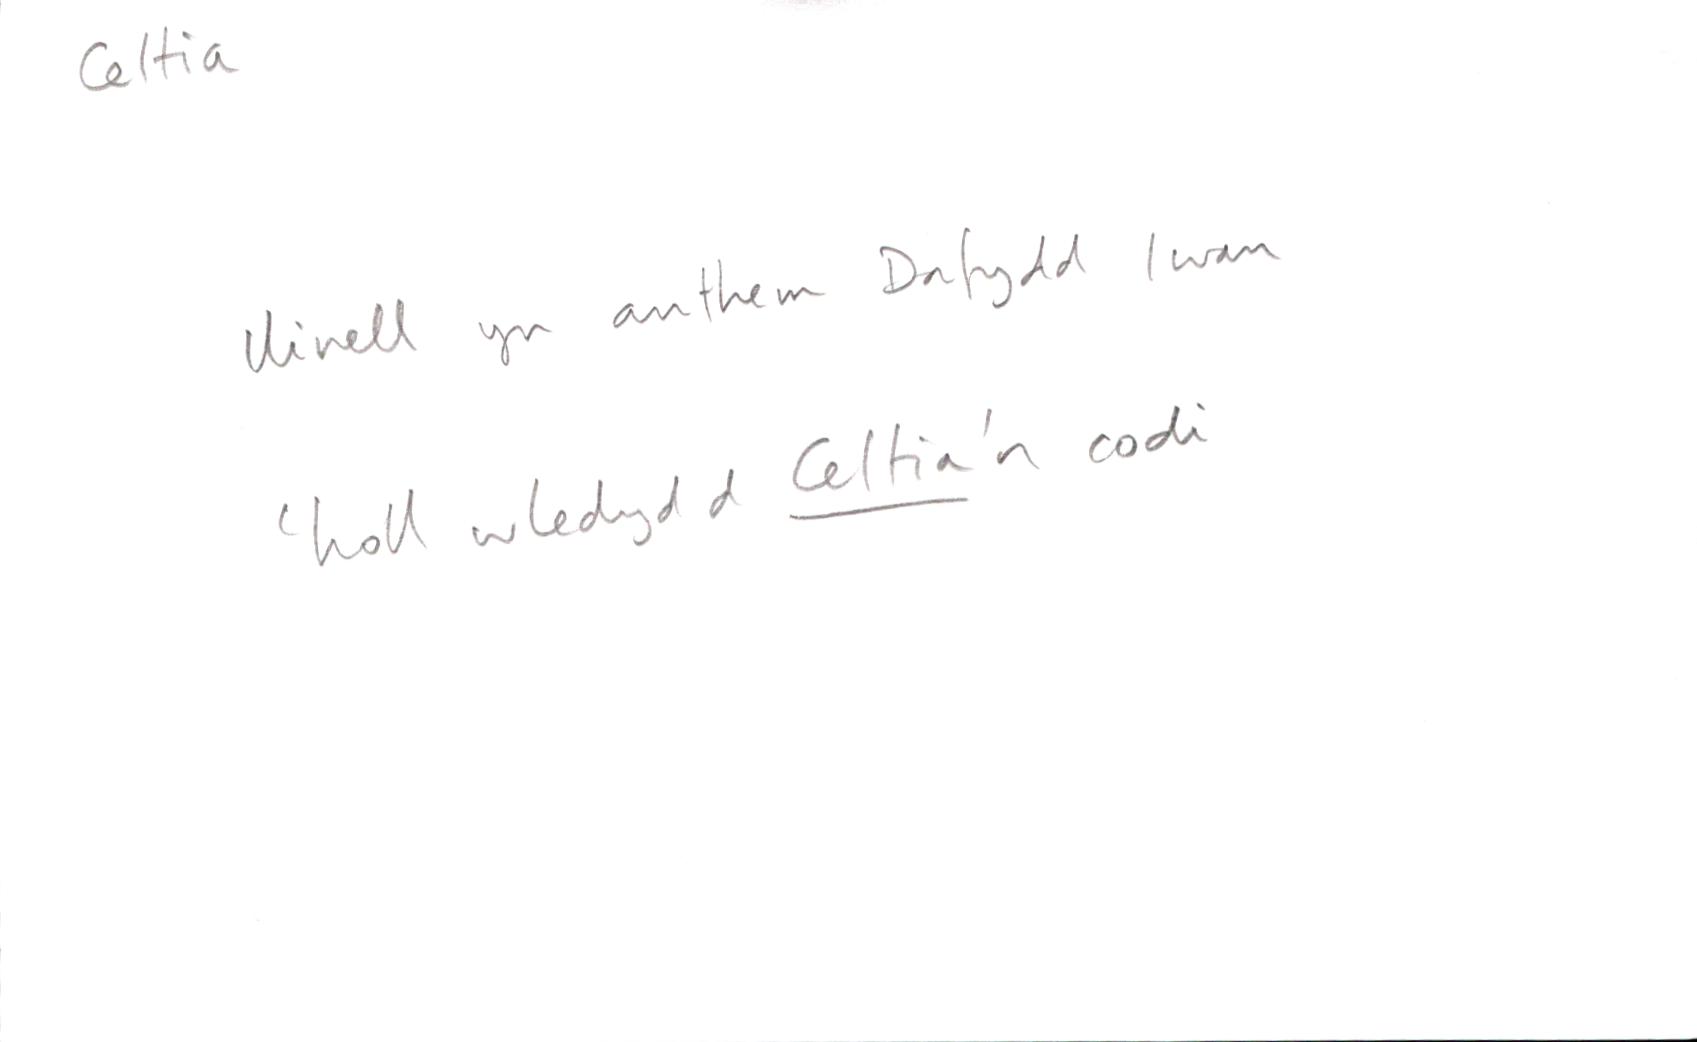 Celtia
llinell yn anthem Dafydd Iwan
'holl wledydd Celtia'n codi